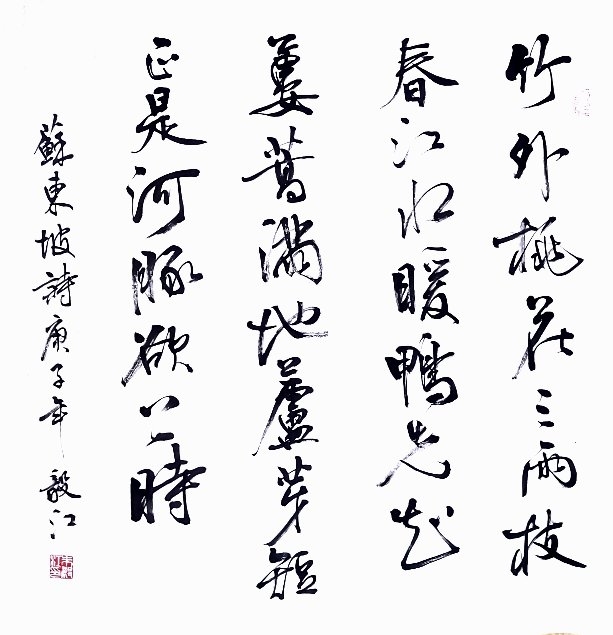 竹外桃花三兩枝
春江水暖鴨先知
蔞蒿滿地蘆芽短
正是河豚欲上時
蘇東坡詩庚子年 毅江